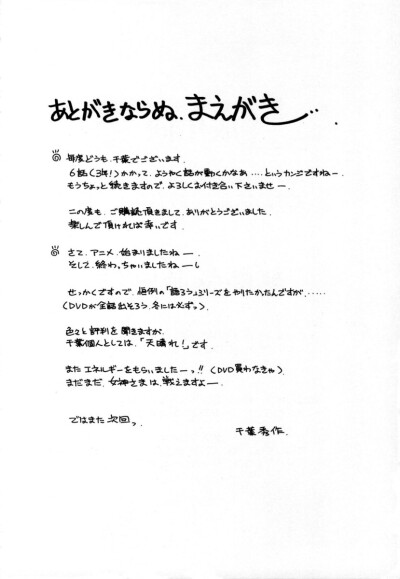 あとがきならぬ、まえがき…。
毎度どうも、千葉でございます。
6話(3年!)かかって、ようやく話が動くかなぁ‥‥というカンジですねー。
もうちょっと続きますので、よろしくお付き合い下さいませー。
この度も、ご購読頂きまして、ありがとうございました。
楽しんで頂ければ幸いです。
さて、アニメ、始まりましたねー。
そして、終わっちゃいましたねー。
せっかくですので、恒例の「語ろう」シリーズをやりたかったんですが、‥‥‥
(DVDが全話出そろう、冬には必ずっ。)
色々と評判を聞きますが、
千葉個人としては、「天晴れ!」です。
またエネルギーをもらいましたーっ!!(DVD買わなきゃ)
まだまだ、女神さまは、戦えますよー。
ではまた次回っ。
千葉秀作.